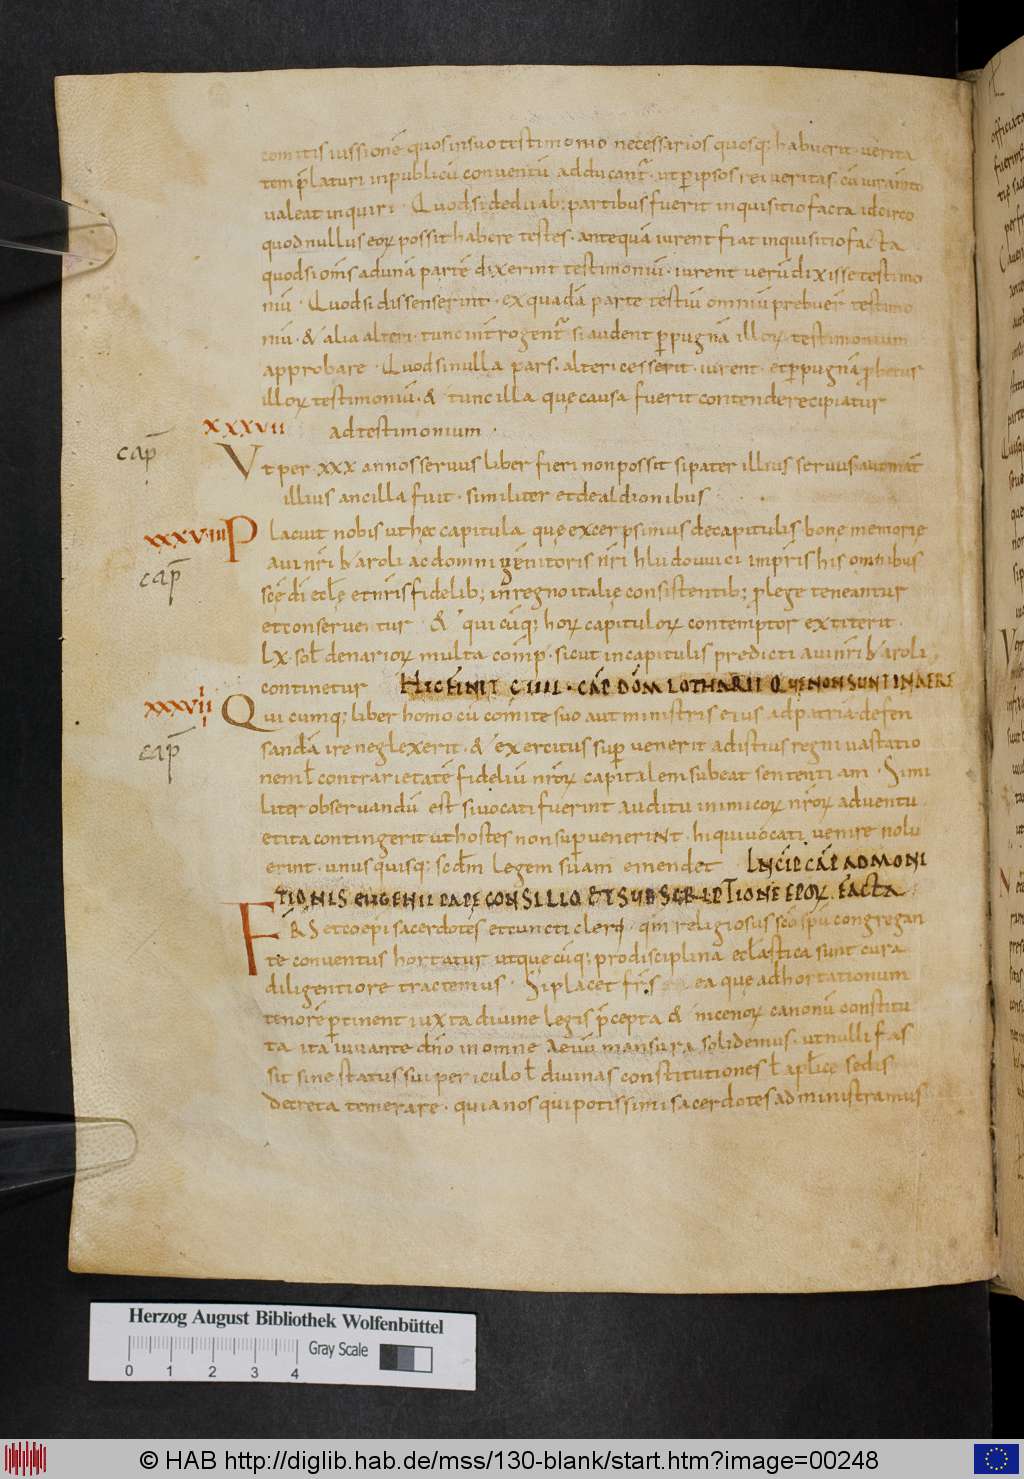 comitis iussione quos in suo testimonio necessarios quosq; habuerit verita
tem p̄laturi in publicū conventū adducant̃ · ut p̱ ipsos rei veritas cū iuramto
valeat inquiri · Quod si de duab; partibus fuerit inquisitio facta idcirco
quod nullus eoꝝ possit habere testes · antequā iurent fiat inquisitio facta
quod si om̄s ad unā partē dixerint testimoniū · iurent verū dixisse testimo
niū · Quod si dissenserint · ex quadā parte testiū omniū prebuer testimo
niū · & alia alteri · tunc int̄rogent̃ si audent p̱ pugnā illoꝝ testimonium
approbare · Quod si nulla pars · alteri cesserit · iurent · et p̱ pugnā p̄betur
illoꝝ testimoniū · & tunc illa quę causa fuerit contende recipiatur
xxxvii ad testimonium ·
cap̄ Vt per xxx annos servus liber fieri non possit si pater illius servus aut mat̄
illius ancilla fuit · similiter et de aldionibus
xxxviiii Placuit nobis ut hęc capitula quę excerpsimus de capitulis bonę memorię
avi nr̄i karoli ac domni genitoris nr̄i hludouuici impr̄is his omnibus
cap̄ scē dī eclę et nr̄is fidelib; in regno italię consistentib; p̄ lege teneantur
et conserventur & quicūq; hoꝝ capituloꝝ contemptor extiterit ·
lx · sol denarioꝝ multa comp̄ · sicut in capitulis predicti avi nr̄i karoli
continetur HIC FINIT C IIII · CAP̄ DŌM LOTHARII QUE NON SUNT IN AERE
xxxvii Quicumq; liber homo cū comite suo aut ministris eius ad patria defen
cap̄ sandā ire neglexerit · & exercitus sup̱venerit ad istius regni vastatio
nem ł contrarietatē fideliū nr̄oꝝ capitalem subeat sententiam · Simi
liter observandū est si vocati fuerint auditu inimicoꝝ nr̄oꝝ adventu
et ita contingerit ut hostes non sup̱venerint · hi qui vocati venire nolu
erint · unusquisq; scdm legem suam emendet INCIP CAP̄ ADMONI
TIONIS EUGENII PAPE CONSILIO ET SUBSCRIPTIONE EPOꝝ FACTA
FR̄S et coepi sacerdotes et cuncti cleri · qm̄ religiosus sc̄o sp̄u congregan
te conventus hortatur ut quecūq; pro disciplina ecl̄astica sunt cura
diligentiore tractemus · Si placet fr̄s ea que ad hortationum
tenorē p̱tinent iuxta divine legis p̄cepta & nicenoꝝ canonū constitu
ta ita iuvante dn̄o in omne aevū mansura solidemus · ut nulli fas
sit sine status sui periculo ł divinas constitutiones ł aplicę sedis
decreta temerare · quia nos qui potissimi sacerdotes administramus
Herzog August Bibliothek Wolfenbüttel
Gray Scale
0 1 2 3 4
© HAB http://diglib.hab.de/mss/130-blank/start.htm?image=00248